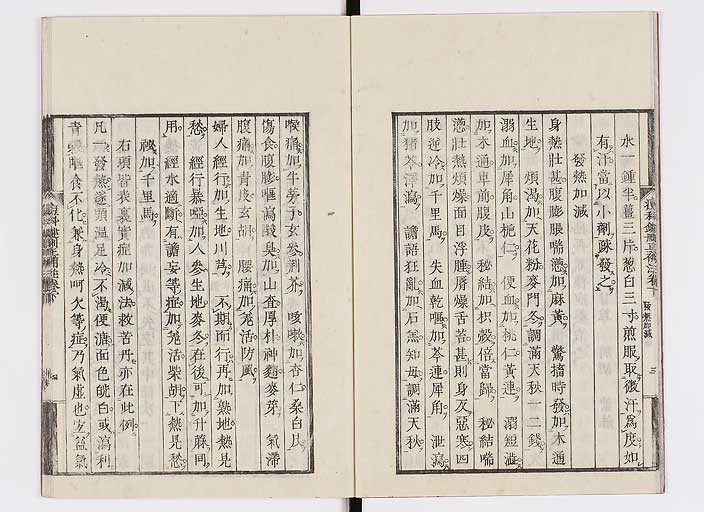 水一鍾半薑三片葱白三寸煎服取微汗爲度如
有汗當以小劑蘇發之
發熱加減
身熱壯甚腹膨脹喘懣加麻黃 驚搐時發加木通
生地 煩渴加天花粉麥門冬調滿天秋一二錢
溺血加犀角山梔仁 便血加桃仁黃連 溺短澁
加木通車前腹皮 秘結加枳殼倍當歸 秘結喘
懣壯熱煩燥面目浮腫唇燥舌苦甚則身反惡寒四
肢逆冷加千里馬 失血乾嘔加芩連犀角 泄瀉
加猪苓澤瀉 譫語狂亂加石羔知母調滿天秋
喉痛加牛蒡子玄參荆芥 咳嗽加杏仁桑白皮
傷食腹膨嘔瀉酸臭加山查厚朴神麯麥芽 氣滯
腹痛加青皮玄胡 腰痛加羗活防風
婦人經行加生地川芎 不期而行再加熱地熱見
愁 經行暴啞加人參生地麥冬在後可加升藤同
用 經水適斷有譫妄等症加羗活柴胡下熱見愁
秘加千里馬
右項皆表裏實症加減法救苦丹亦在此例
凡一發熱遂頭溫足冷不渴便溏面色㿠白或瀉利
青 食不化兼身熱呵欠等症乃氣虛也宜益氣